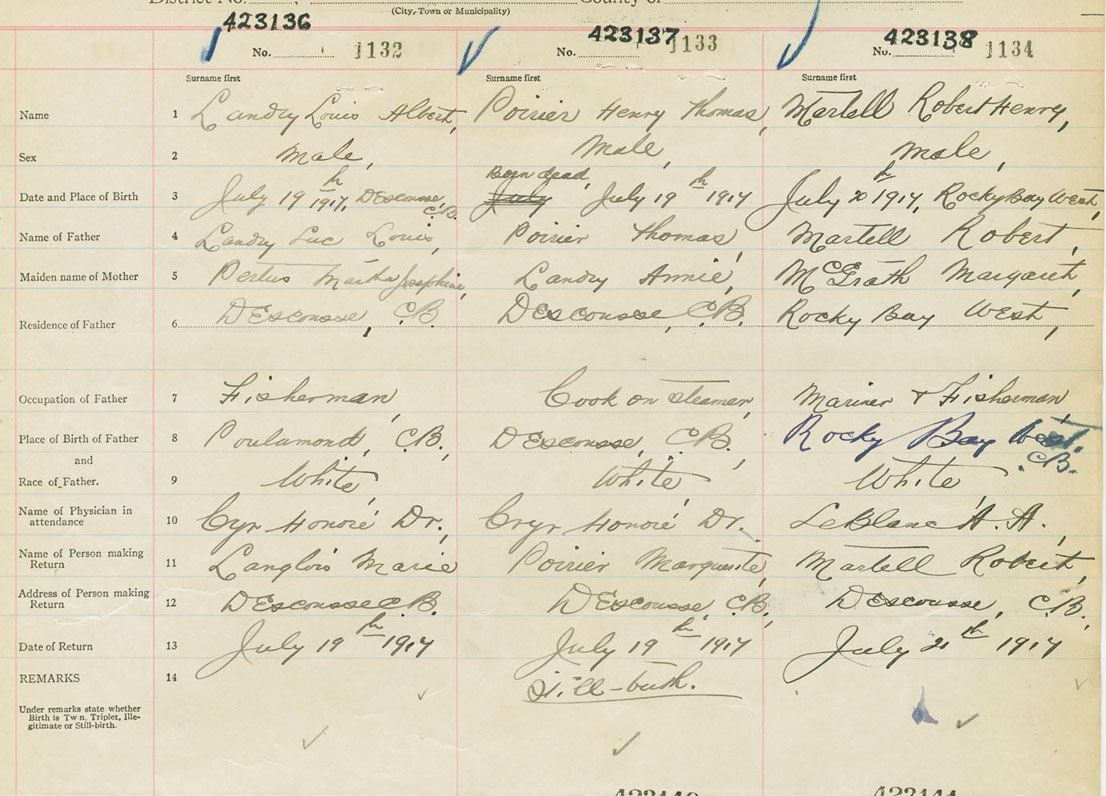 District No. County of
(City, Town or Municipality)
423136 423137 423138
No. 1132 No. 1133 No. 1134
Surname first Surname first Surname first
Name 1 Landry Louis Albert, Poirier Henry Thomas, Martell Robert Henry,
Sex 2 Male, Male, Male,
Born dead,
Date and Place of Birth 3 July 19th 1917, DEscousse, C.B. July July 19th 1917 July 20th 1917, Rocky Bay West,
Name of Father 4 Landry Luc Louis, Poirier Thomas, Martell Robert,
Maiden name of Mother 5 Pertus Martha Josephine, Landry Annie, McGrath Margaret,
Residence of Father 6 DEscousse, C.B. DEscousse, C.B. Rocky Bay West,
Occupation of Father 7 Fisherman, Cook on steamer, Mariner & Fisherman
Place of Birth of Father 8 Poulamond, C.B., DEscousse, C.B., Rocky Bay West, C.B.
and
Race of Father. 9 White, White, White,
Name of Physician in
attendance 10 Cyr Honoré Dr., Cryr Honoré Dr. LeBlanc A. A.,
Name of Person making
Return 11 Langlois Marie Poirier Marguerite, Martell Robert,
Address of Person making
Return 12 DEscousse C.B. DEscousse, C.B., DEscousse, C.B.,
Date of Return 13 July 19th 1917 July 19th 1917 July 21th 1917
REMARKS 14 Still-birth.
Under remarks state whether
Birth is Twin, Triplet, Ille-
gitimate or Still-birth.